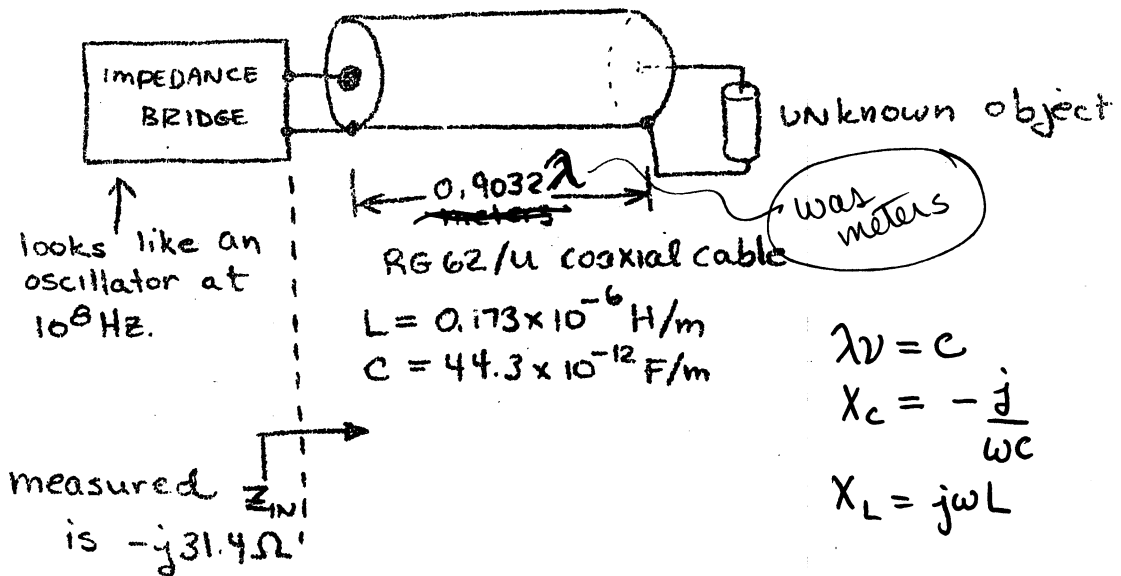 IMPEDANCE
BRIDGE
unknown object
0.9032 λ
meters
was
meters
looks like an
oscillator at
10⁸ Hz.
RG 62/U coaxial cable
L = 0.173 x 10⁻⁶ H/m
C = 44.3 x 10⁻¹² F/m
λν = c
X_C = - j/ωC
X_L = jωL
measured Z_IN
is -j31.4Ω